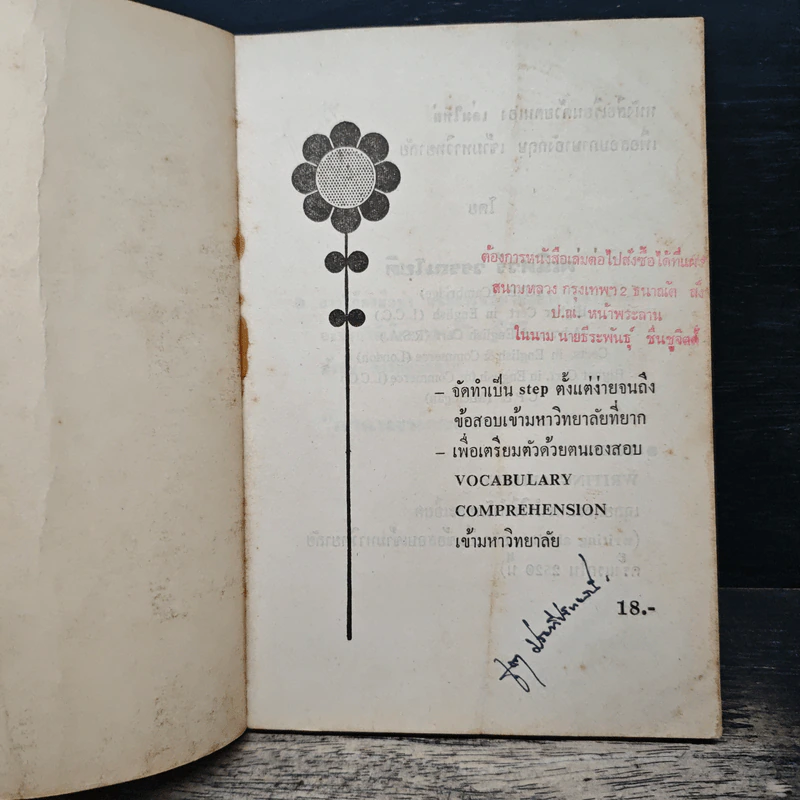 ต้องการหนังสือเล่มต่อไปสั่งซื้อได้ที่แผ
สนามหลวง กรุงเทพฯ 2 ธนาณัต สั่ง
ป.ณ. หน้าพระลาน
ในนาม นายธีระพันธุ์ ชื่นชูจิตต์
– จัดทำเป็น step ตั้งแต่ง่ายจนถึง
ข้อสอบเข้ามหาวิทยาลัยที่ยาก
– เพื่อเตรียมตัวด้วยตนเองสอบ
VOCABULARY
COMPREHENSION
เข้ามหาวิทยาลัย
18.-